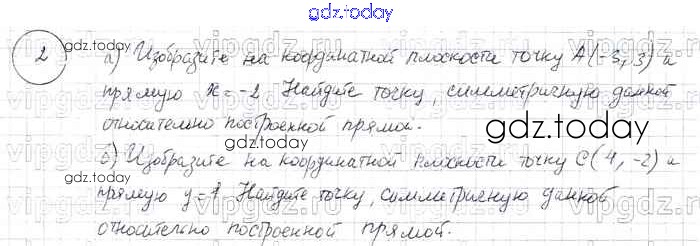 gdz.today
2
а) Изобразите на координатной плоскости точку A(-5, 3) и
gdz.today
прямую x = -2. Найдите точку, симметричную данной
относительно построенной прямой.
gdz.today
б) Изобразите на координатной плоскости точку C(4, -2) и
gdz.today
прямую y = 1. Найдите точку, симметричную данной
относительно построенной прямой.
gdz.today